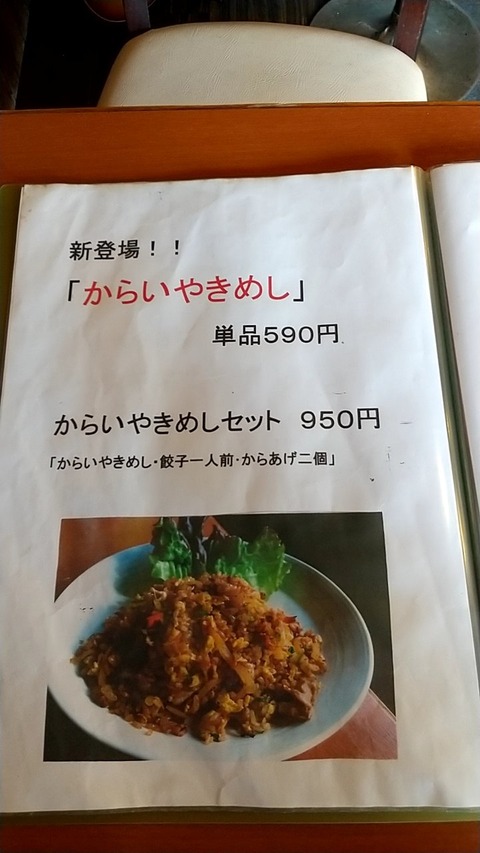 新登場！！
「からいやきめし」
単品590円
からいやきめしセット 950円
「からいやきめし・餃子一人前・からあげ二個」